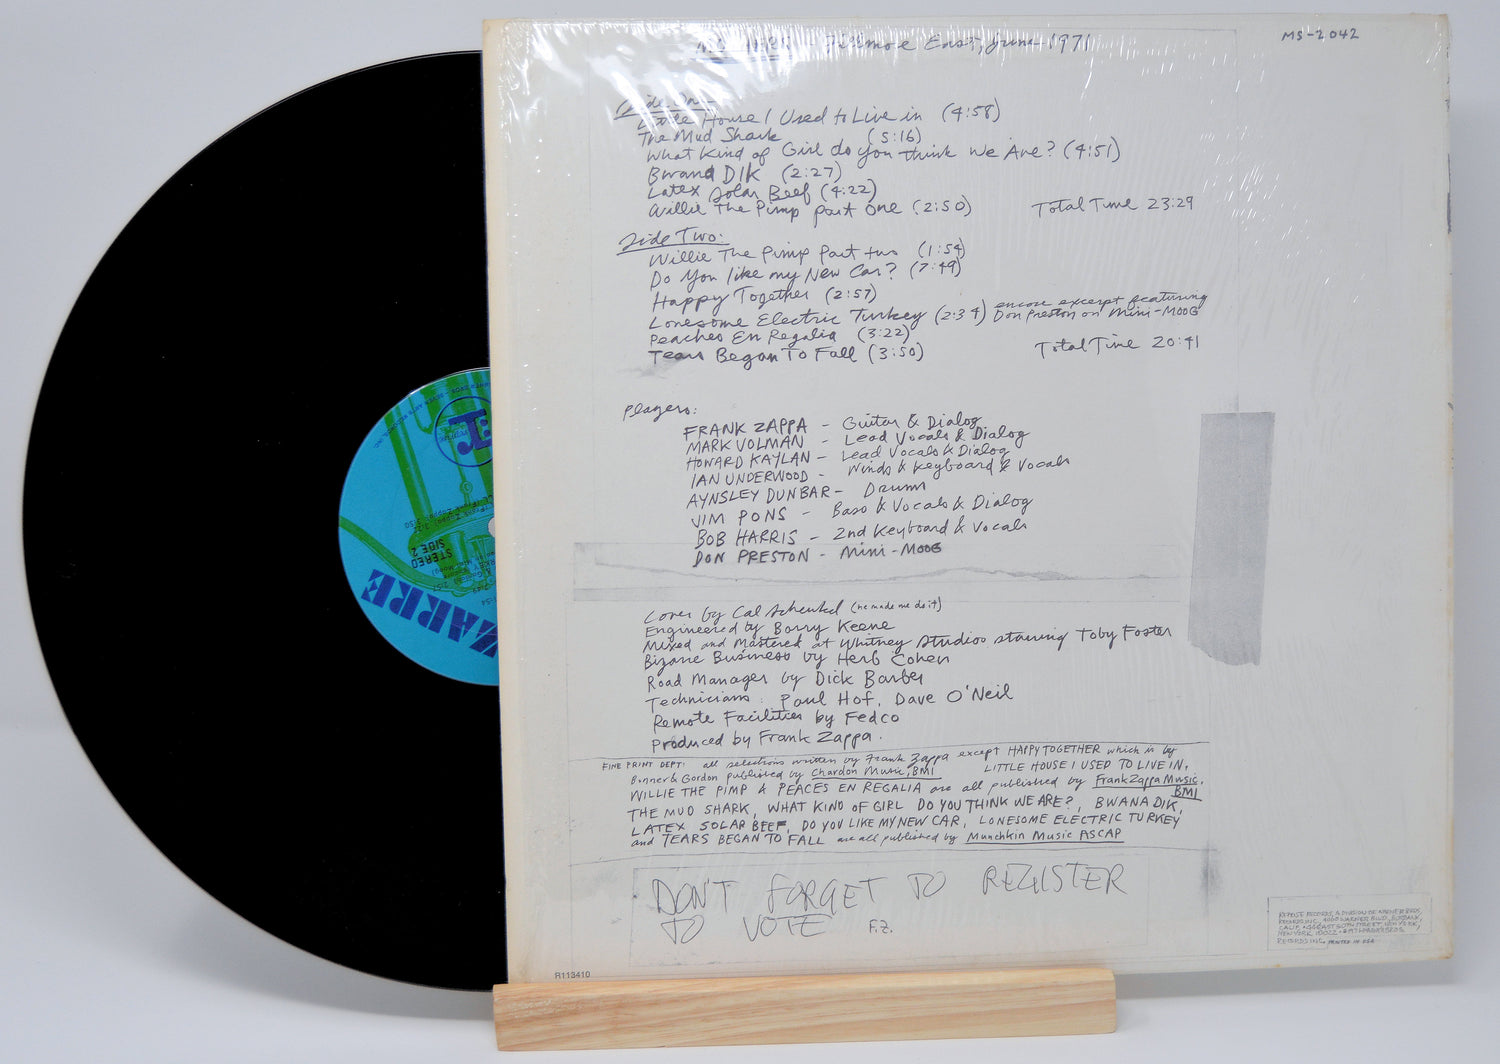 MOTHERS Fillmore East, June 1971
MS-2042
Side One
Little House I Used to Live in (4:58)
The Mud Shark (5:16)
What Kind of Girl do you think We Are? (4:51)
Bwana DIK (2:27)
Latex Solar Beef (4:22)
Willie The Pimp part One (2:50) Total Time 23:29
Side Two:
Willie The Pimp Part two (1:54)
Do You like my New Car? (7:49)
Happy Together (2:57)
Lonesome Electric Turkey (2:34) encore excerpt featuring
Don Preston on Mini-MOOG
Peaches En Regalia (3:22)
Tears Began To Fall (3:50) Total Time 20:41
Players:
FRANK ZAPPA - Guitar & Dialog
MARK VOLMAN - Lead Vocals & Dialog
HOWARD KAYLAN - Lead Vocals & Dialog
IAN UNDERWOOD - Winds & Keyboard & Vocals
AYNSLEY DUNBAR - Drums
JIM PONS - Bass & Vocals & Dialog
BOB HARRIS - 2nd Keyboard & Vocals
DON PRESTON - Mini-MOOG
Cover by Cal Schenkel (he made me do it)
Engineered by Barry Keene
Mixed and Mastered at Whitney Studios starring Toby Foster
Bizarre Business by Herb Cohen
Road Manager by Dick Barber
Technicians: Paul Hof, Dave O'Neil
Remote Facilities by Fedco
Produced by Frank Zappa.
FINE PRINT DEPT: all selections written by Frank Zappa except HAPPY TOGETHER which is by
Bonner & Gordon published by Chardon Music, BMI LITTLE HOUSE I USED TO LIVE IN,
WILLIE THE PIMP & PEACES EN REGALIA are all published by Frank Zappa Music,
BMI
THE MUD SHARK, WHAT KIND OF GIRL DO YOU THINK WE ARE?, BWANA DIK,
LATEX SOLAR BEEF, DO YOU LIKE MY NEW CAR, LONESOME ELECTRIC TURKEY
and TEARS BEGAN TO FALL are all published by Munchkin Music ASCAP
DON'T FORGET TO REGISTER
TO VOTE F.Z.
REPRISE RECORDS, A DIVISION OF WARNER BROS.
RECORDS INC. 4000 WARNER BLVD., BURBANK,
RECORDS INC. PRINTED IN USA
R113410
STEREO
SIDE 2